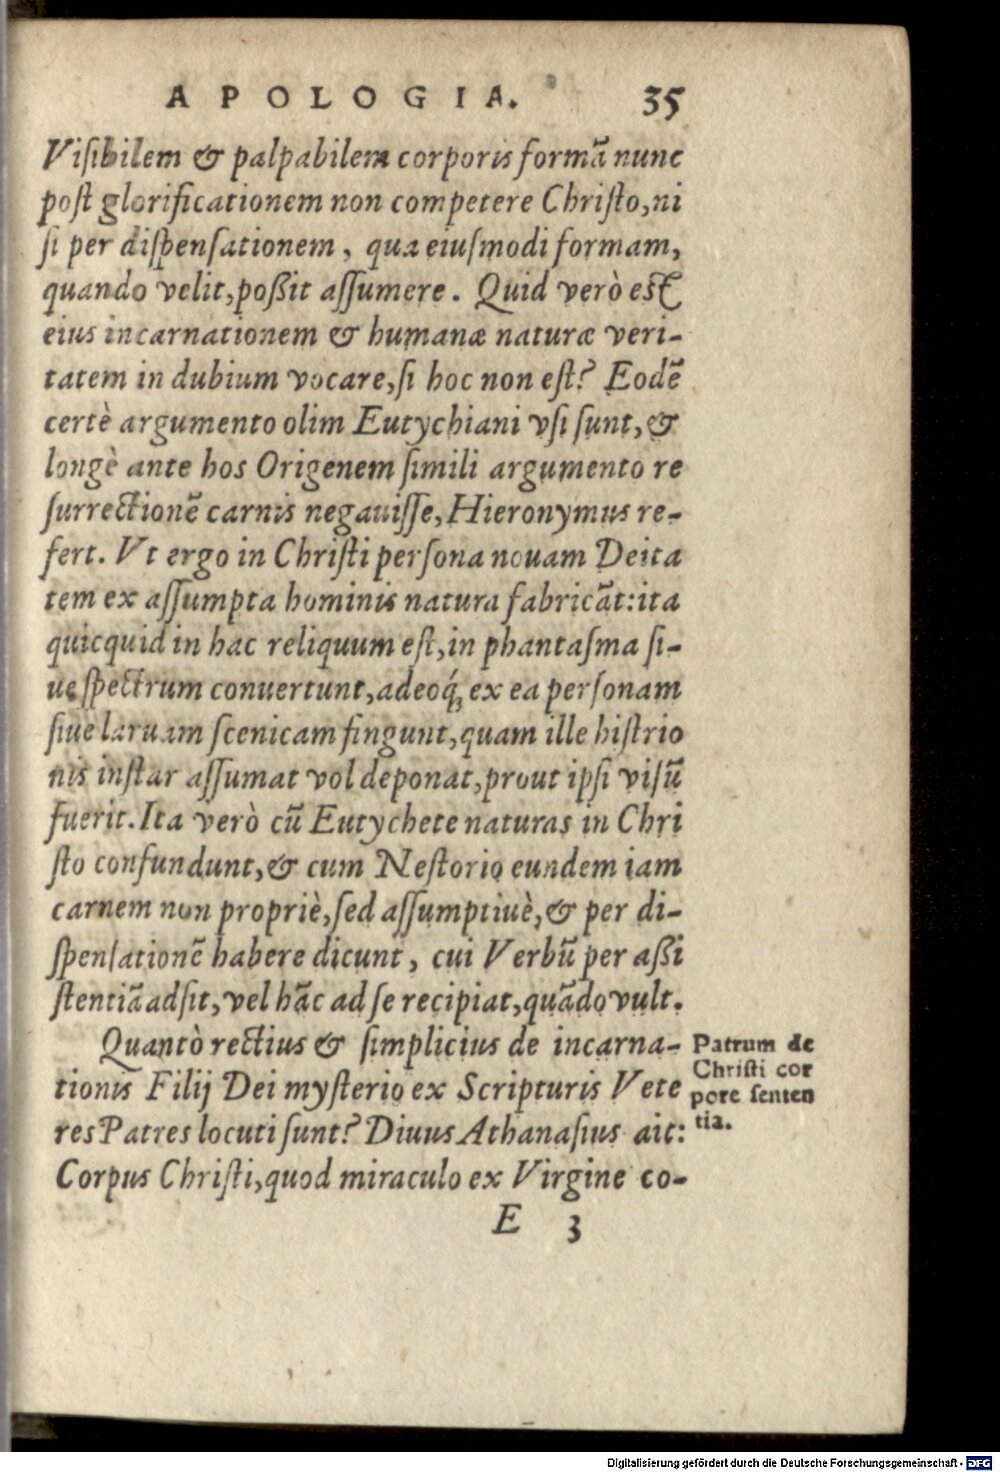 APOLOGIA. 35
Viſibilem & palpabilem corporis formã nunc
poſt glorificationem non competere Chriſto, ni
ſi per diſpenſationem, qua eiuſmodi formam,
quando velit, poßit aſſumere. Quid verò eſt
eius incarnationem & humanæ naturæ veri-
tatem in dubium vocare, ſi hoc non eſt? Eodẽ
certè argumento olim Eutychiani vſi ſunt, &
longè ante hos Origenem ſimili argumento re
ſurrectionẽ carnis negauiſſe, Hieronymus re-
fert. Vt ergo in Chriſti perſona nouam Deita
tem ex aſſumpta hominis natura fabricãt: ita
quicquid in hac reliquum eſt, in phantaſma ſi-
ue ſpectrum conuertunt, adeoq́; ex ea perſonam
ſiue laruam ſcenicam fingunt, quam ille hiſtrio
nis inſtar aſſumat vel deponat, prout ipſi viſũ
fuerit. Ita verò cũ Eutychete naturas in Chri
ſto confundunt, & cum Neſtorio eundem iam
carnem non propriè, ſed aſſumptiuè, & per di-
ſpenſationẽ habere dicunt, cui Verbũ per aßi
ſtentiã adſit, vel hãc ad ſe recipiat, quãdo vult.
Quantò rectius & ſimplicius de incarna-
tionis Filij Dei myſterio ex Scripturis Vete
res Patres locuti ſunt? Diuus Athanaſius ait:
Corpus Chriſti, quod miraculo ex Virgine co-
E 3
Patrum de
Chriſti cor
pore ſenten
tia.
Digitalisierung gefördert durch die Deutsche Forschungsgemeinschaft - DFG